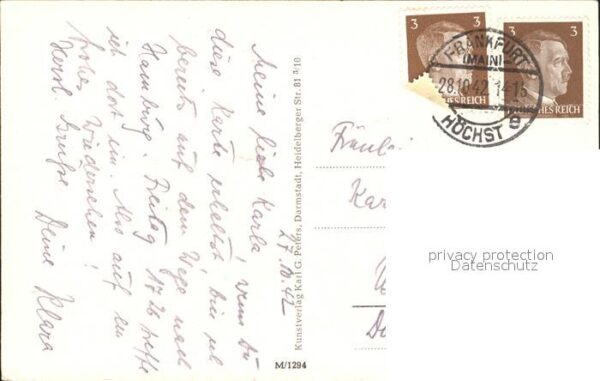 27.10.42
Meine liebe Karla! Wenn Du
diese Karte erhältst, bin ich
bereits auf dem Wege nach
Hamburg. Freitag 17.26 treffe
ich dort ein. Also auf ein
frohes Wiedersehen!
Herzl. Grüße Deine Klara
Kunstverlag Karl G. Peters, Darmstadt, Heidelberger Str. 81 3/10
M/1294
3
3 3
HES REICH
HES REICH
FRANKFURT
(MAIN)
28.10.42.14-15
HÖCHST
Fräul
Kar
privacy protection
Datenschutz